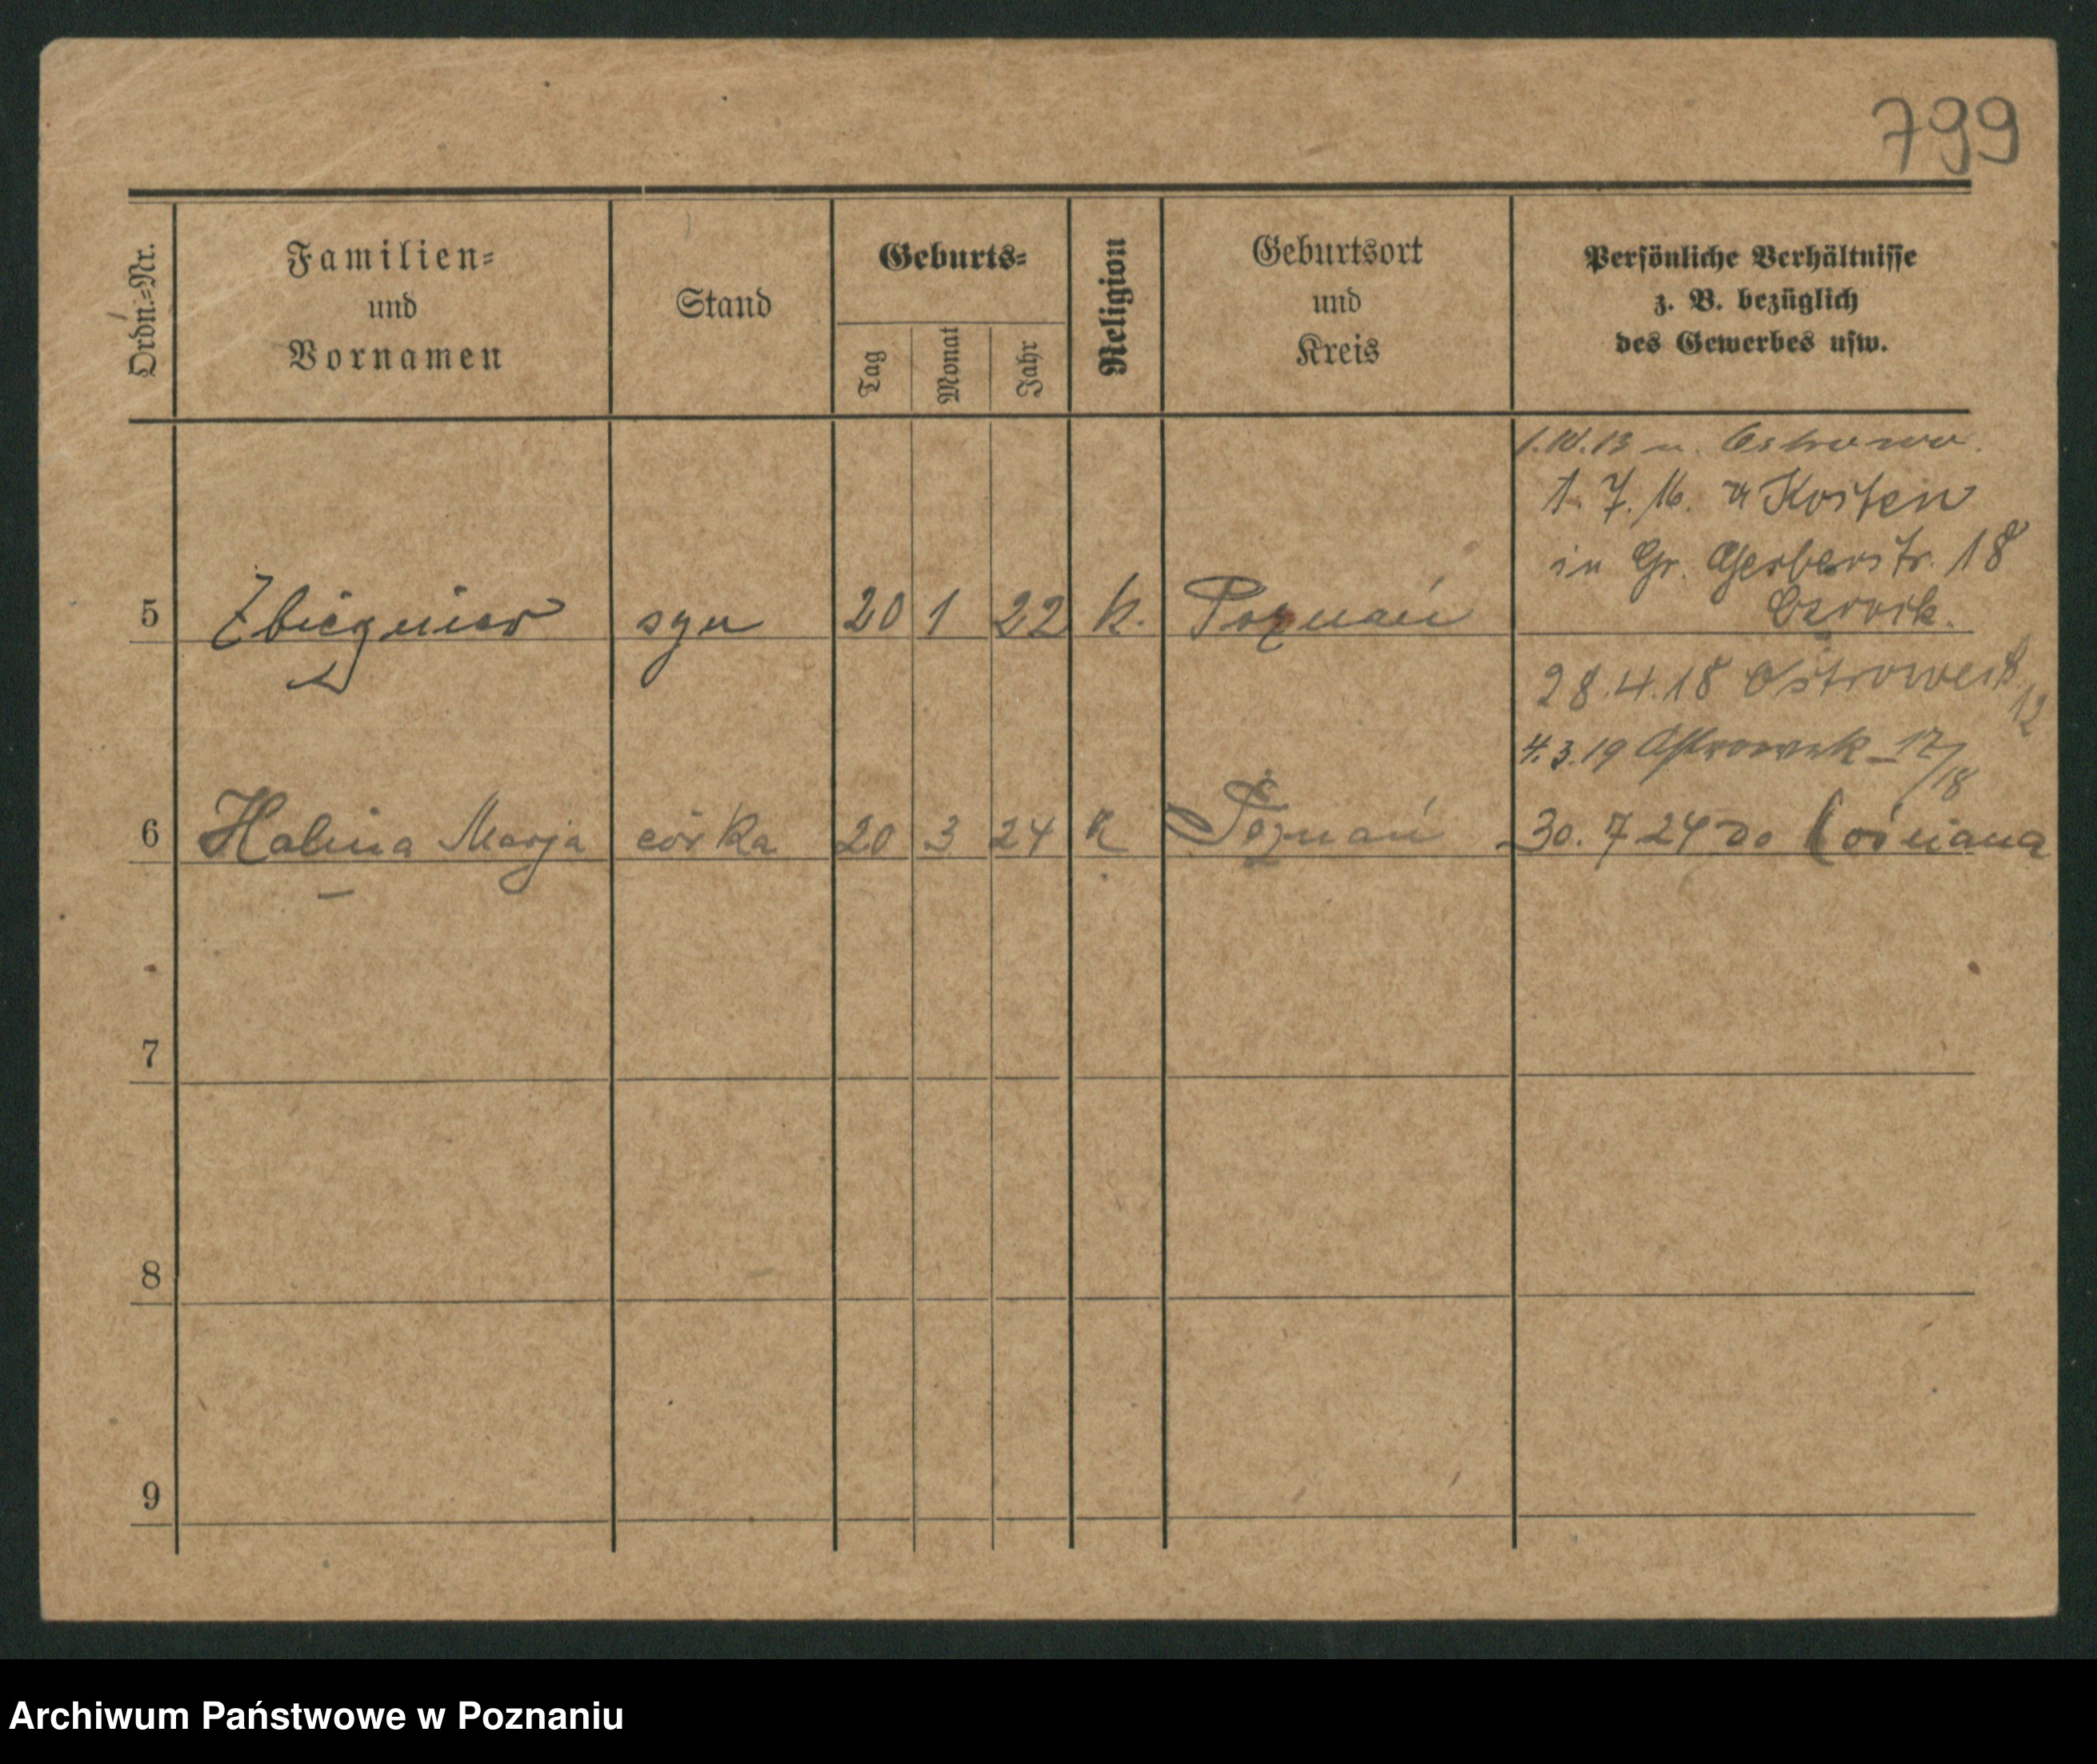 799
Ordn.-Nr.
Familien-
und
Vornamen
Stand
Geburts-
Tag
Monat
Jahr
Religion
Geburtsort
und
Kreis
Persönliche Verhältnisse
z. B. bezüglich
des Gewerbes usw.
1.10.13 n. Ostrowo.
1. 7. 16. n Kosten
in Gr. Gerberstr. 18
5 Zbigniew syn 20 1 22 k. Poznań
28.4.18 Ostrowek 12
4.3.19 Ostrowek 17/18
6 Halina Marja córka 20 3 24 k Poznań 30. 7 24 do Kościana
7
8
9
Archiwum Państwowe w Poznaniu